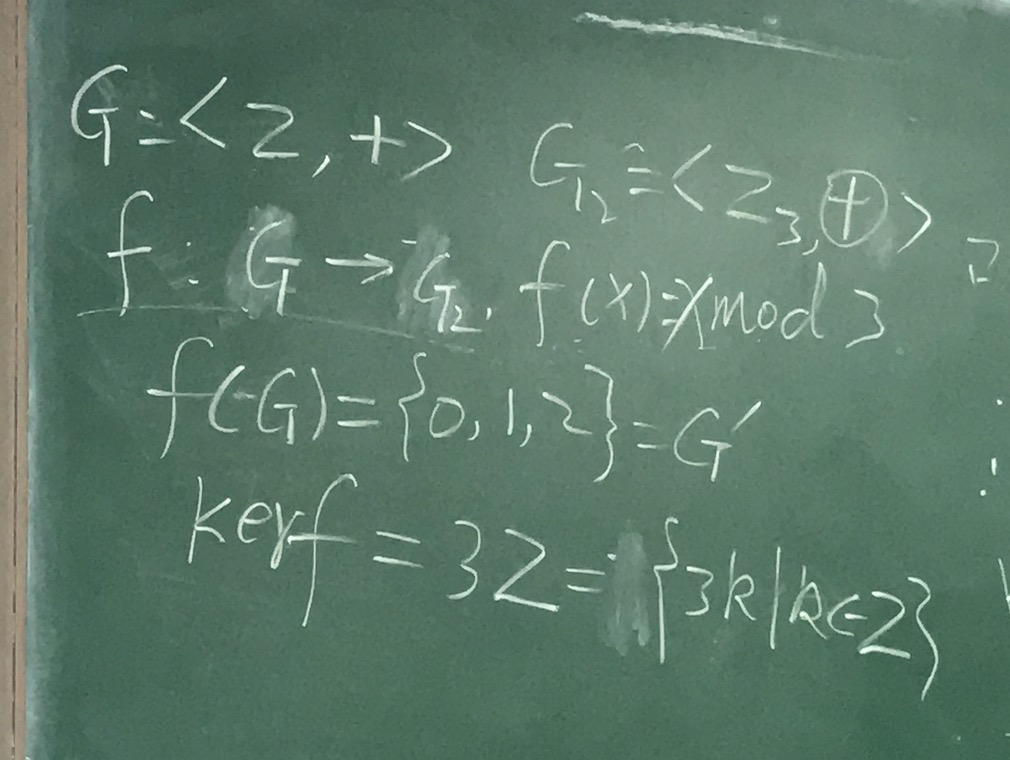 G=<Z,+> G₂=<Z₃,⊕>
f: G→G₂. f(x)=x mod 3
f(G)={0,1,2}=G′
kerf=3Z={3k|k∈Z}